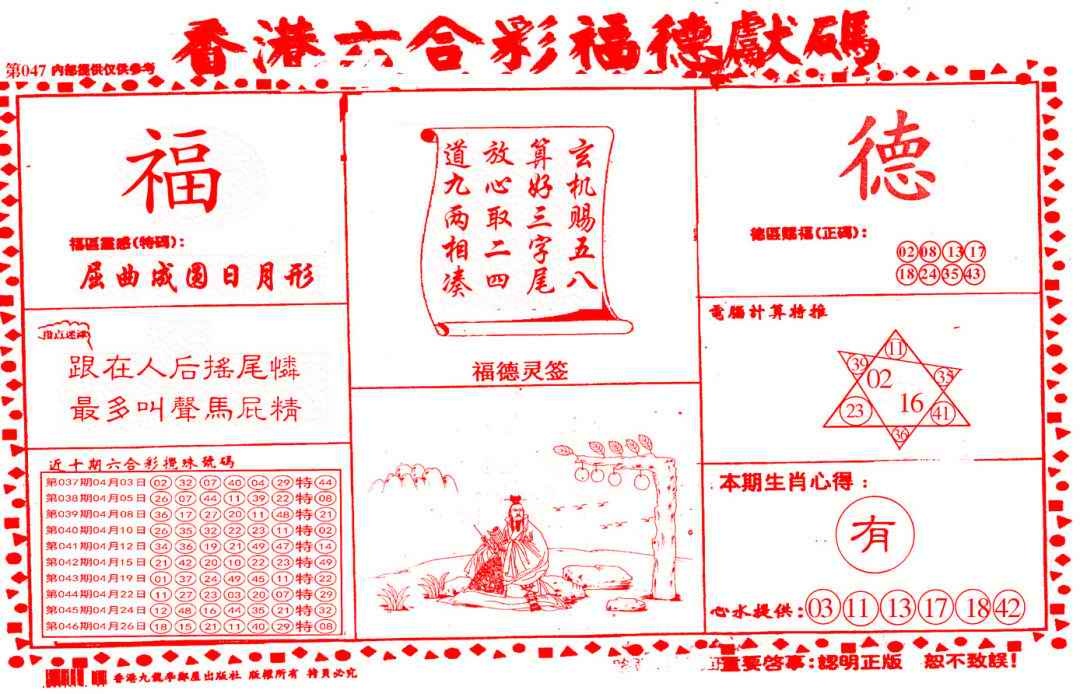 香港六合彩福德獻碼
第047 内部提供仅供参考
福
福區靈感(特碼):
屈曲成圆日月形
指点迷津
跟在人后搖尾憐
最多叫聲馬屁精
近十期六合彩攪珠號碼
第037期04月03日 02 32 07 40 04 29 特 44
第038期04月05日 26 07 44 11 39 22 特 08
第039期04月08日 36 17 27 20 11 48 特 21
第040期04月10日 26 35 32 22 23 11 特 02
第041期04月12日 34 36 19 21 49 47 特 14
第042期04月15日 21 42 20 10 22 23 特 49
第043期04月19日 01 37 24 49 45 11 特 22
第044期04月22日 11 27 23 03 20 07 特 29
第045期04月24日 12 48 16 44 35 21 特 32
第046期04月26日 18 15 21 11 40 29 特 08
玄机赐五八
算好三字尾
放心取二四
道九两相凑
福德灵签
德
德區賜福(正碼):
02 08 13 17
18 24 35 43
電腦計算特推
11
39 02 33
23 16 41
36
本期生肖心得:
有
心水提供: 03 11 13 17 18 42
香港九龍 出版社 版權所有
重要啓事:認明正版 恕不致誤!